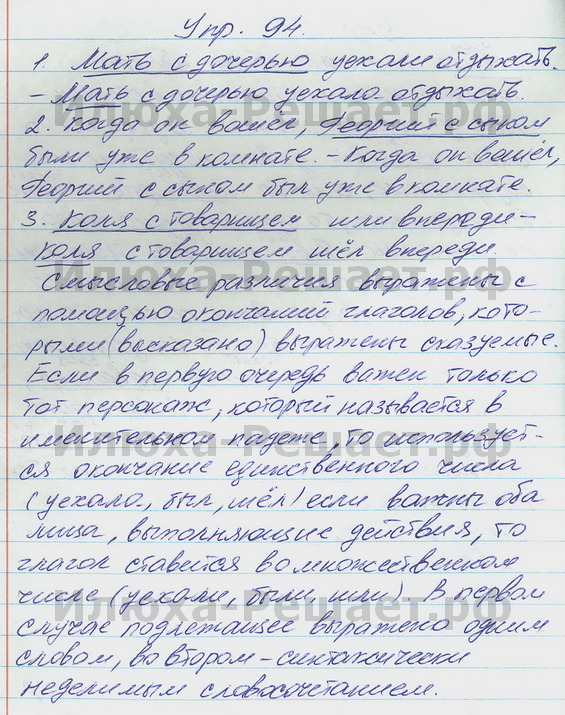 Упр. 94.
1. Мать с дочерью уехали отдыхать.
- Мать с дочерью уехала отдыхать.
2. Когда он вошёл, Георгий с сыном
были уже в комнате. - Когда он вошёл,
Георгий с сыном был уже в комнате.
3. Коля с товарищем шли впереди -
Коля с товарищем шёл впереди.
Смысловые различия выражены с
помощью окончаний глаголов, кото-
рыми (высказано) выражены сказуемые.
Если в первую очередь важен только
тот персонаж, который называется в
именительном падеже, то использует-
ся окончание единственного числа
(уехала, был, шёл) если важны оба
лица, выполняющие действия, то
глагол ставится во множественном
числе (уехали, были, шли). В первом
случае подлежащее выражено одним
словом, во втором - синтаксически
неделимым словосочетанием.
Илюха-Решает.рф
Илюха-Решает.рф
Илюха-Решает.рф
Илюха-Решает.рф